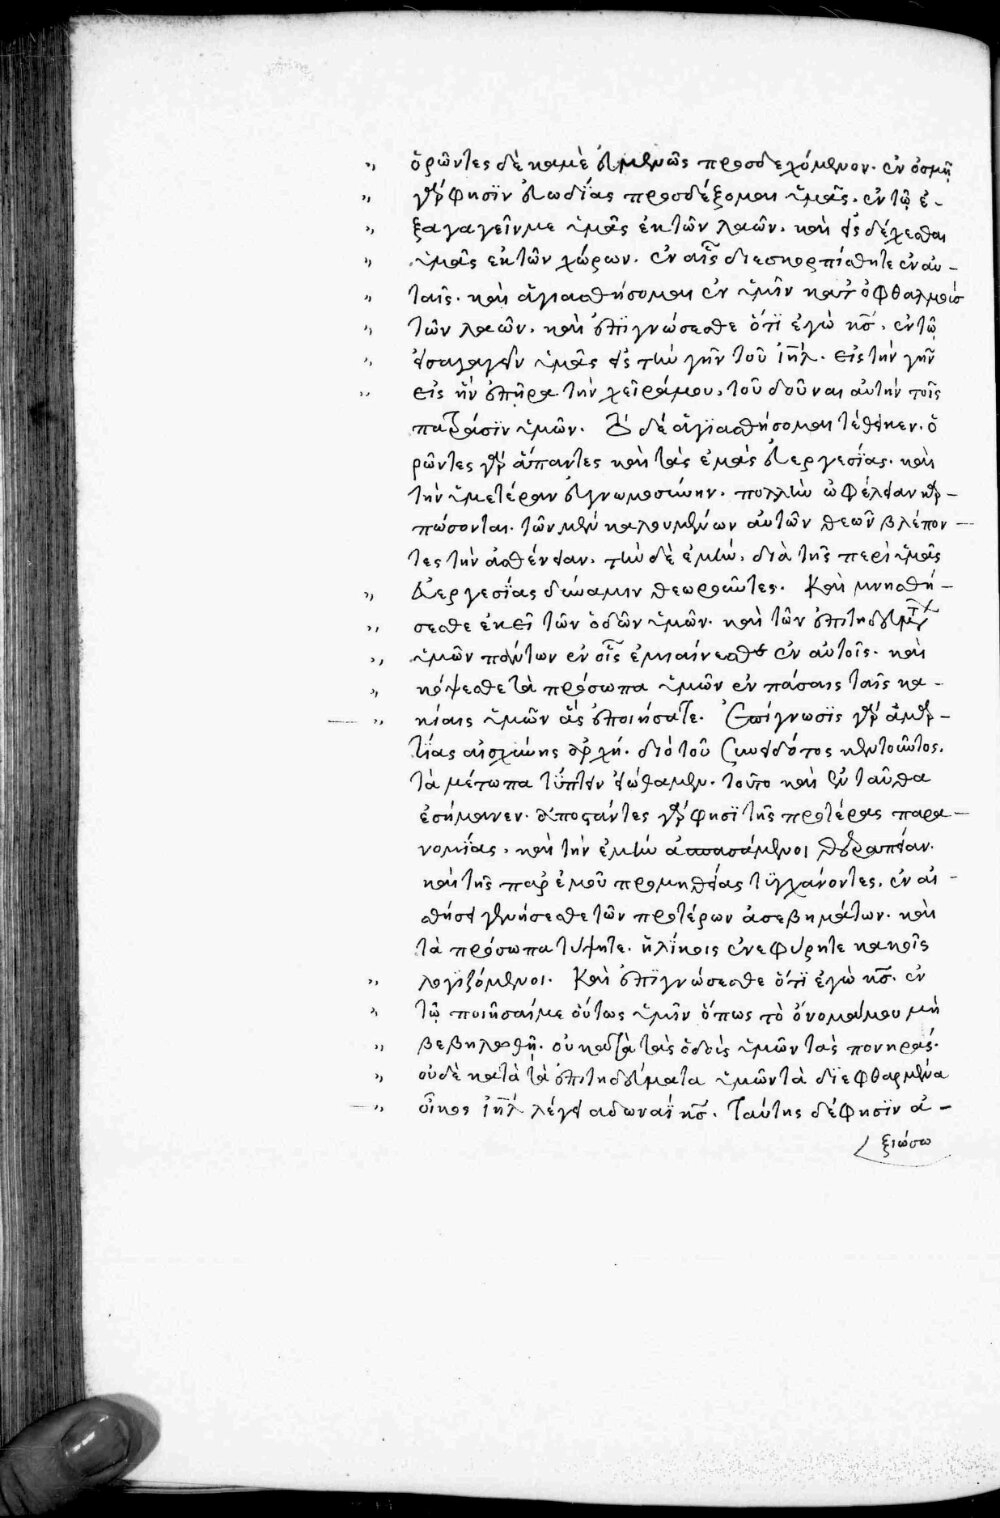 ὁρῶντες δὲ καμὲ εὐμενῶς προσδεχόμενον. ἐν ὀσμῇ
γάρ φησὶν εὐωδίας προσδέξομαι ὑμᾶς. ἐν τῷ ἐ-
ξαγαγεῖν με ὑμᾶς ἐκ τῶν λαῶν. καὶ εἰσδέχεσθαι
ὑμᾶς ἐκ τῶν χώρων. ἐν αἷς διεσκορπίσθητε ἐν αὐ-
ταῖς. καὶ ἁγιασθήσομαι ἐν ὑμῖν κατ' ὀφθαλμοὺς
τῶν λαῶν. καὶ ἐπιγνώσεσθε ὅτι ἐγὼ κς. ἐν τῷ
εἰσαγαγεῖν ὑμᾶς εἰς τὴν γῆν τοῦ ιηλ. εἰς τὴν γῆν
εἰς ἣν ἐπῆρα τὴν χεῖρά μου, τοῦ δοῦναι αὐτὴν τοῖς
πατράσιν ὑμῶν. Τὸ δὲ ἁγιασθήσομαι τέθεικεν. ὁ
ρῶντες γὰρ ἅπαντες καὶ τὰς ἐμὰς εὐεργεσίας. καὶ
τὴν ὑμετέραν εὐγνωμοσύνην. πολλὴν ὠφέλειαν καρ-
πώσονται. τῶν μὲν καλουμένων αὐτῶν θεῶν βλέπον-
τες τὴν ἀσθένειαν. τὴν δὲ ἐμὴν, διὰ τῆς περὶ ὑμᾶς
εὐεργεσίας δύναμιν θεωροῦντες. Καὶ μνησθή-
σεσθε ἐκεῖ τῶν ὁδῶν ὑμῶν. καὶ τῶν ἐπιτηδευμάτων
ὑμῶν πάντων ἐν οἷς ἐμιαίνεσθε ἐν αὐτοῖς. καὶ
κόψεσθε τὰ πρόσωπα ὑμῶν ἐν πάσαις ταῖς κα-
κίαις ὑμῶν αἷς ἐποιήσατε. Ἐπίγνωσις γὰρ ἁμαρ-
τίας αἰσχύνης ἀρχή. διὸ τοῦ συνειδότος κεντοῦντος.
τὰ μέτωπα τύπτειν εἰώθαμεν. τοῦτο καὶ ἐνταῦθα
ἐσήμανεν. ἀποστάντες γάρ φησι τῆς προτέρας παρα-
νομίας. καὶ τὴν ἐμὴν ἀσπασάμενοι θεραπείαν.
καὶ τῆς παρ' ἐμοῦ προμηθείας τυγχάνοντες. ἐν αἰ-
σθήσει γενήσεσθε τῶν προτέρων ἀσεβημάτων. καὶ
τὰ πρόσωπα τύψητε. ἡλίκοις ἐνεφύρητε κακοῖς
λογιζόμενοι. Καὶ ἐπιγνώσεσθε ὅτι ἐγὼ κς. ἐν
τῷ ποιῆσαί με οὕτως ὑμῖν ὅπως τὸ ὄνομά μου μὴ
βεβηλωθῇ. οὐ κατὰ τὰς ὁδοὺς ὑμῶν τὰς πονηράς.
οὐδὲ κατὰ τὰ ἐπιτηδεύματα ὑμῶν τὰ διεφθαρμένα
οἶκος ιηλ λέγει αδωναῒ κς. Ταύτης δέ φησὶν ἀ-
ξιώσω